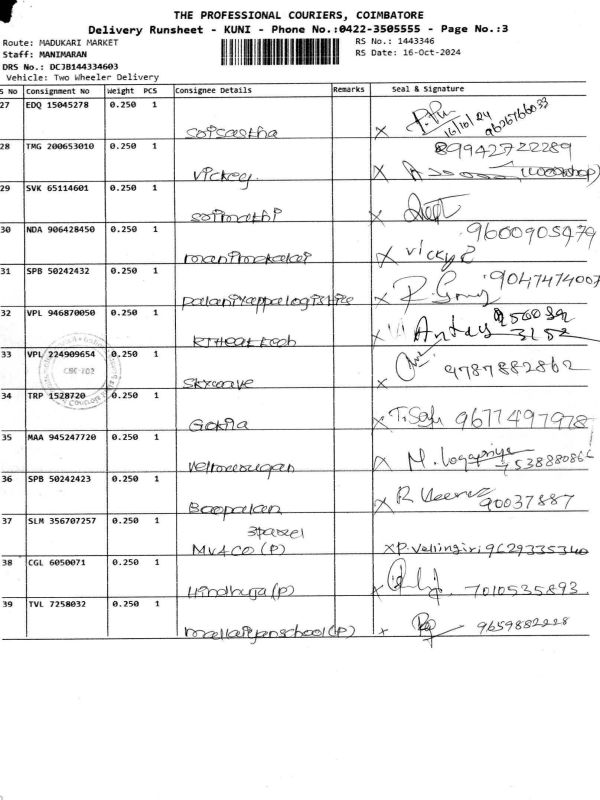 THE PROFESSIONAL COURIERS, COIMBATORE
Delivery Runsheet - KUNI - Phone No.:0422-3505555 - Page No.:3
Route: MADUKARI MARKET RS No.: 1443346
Staff: MANIMARAN RS Date: 16-Oct-2024
DRS No.: DCJB144334603
Vehicle: Two Wheeler Delivery
S No Consignment No Weight PCS Consignee Details Remarks Seal & Signature
27 EDQ 15045278 0.250 1
16/10/24 9626766033
28 TMG 200653010 0.250 1 89942722289
Vickey X
29 SVK 65114601 0.250 1
Soimathi X
30 NDA 906428450 0.250 1 9600905479
manimekalai X vicky
31 SPB 50242432 0.250 1 9047474007
palaniyappa logistics X
32 VPL 946870050 0.250 1
3252
33 VPL 224909654 0.250 1
CBE-702
Skywave X 9787882862
34 TRP 1528720 0.250 1
Gokila X 9677497978
35 MAA 945247720 0.250 1
Velmurugan X M. Logapriya
36 SPB 50242423 0.250 1
Boopalan X R 90037887
37 SLM 356707257 0.250 1 3 parcel
MV4CO (P) X P. Vellingiri 9629335340
38 CGL 6050071 0.250 1
Hindhuja (P) X 7010535893
39 TVL 7258032 0.250 1
mallaiyan school (P) X 9659882228